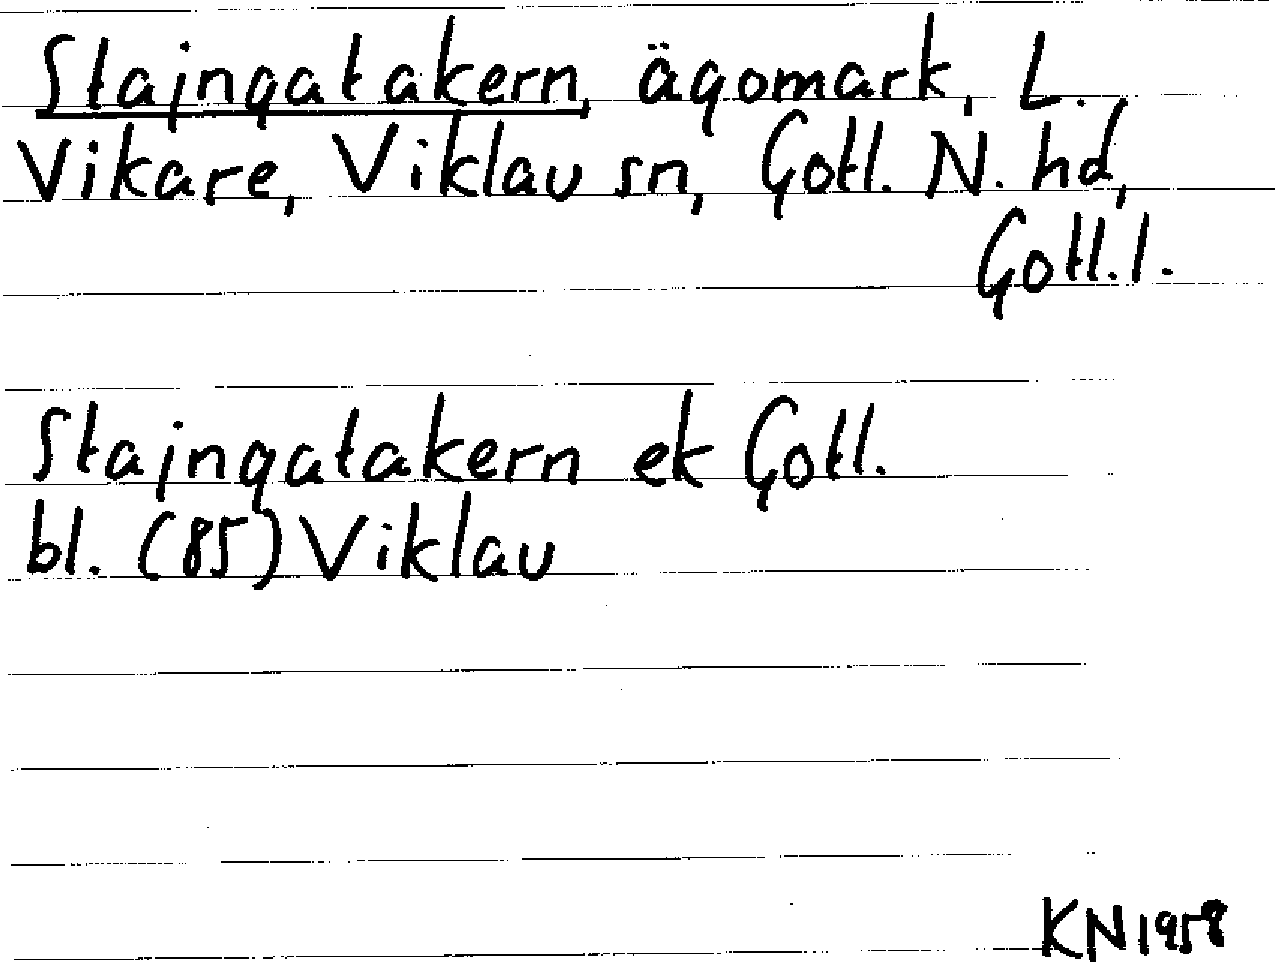 Stajngatakern, ägomark, L.
Vikare, Viklau sn, Gotl. N. hd,
Gotl. l.
Stajngatakern ek Gotl.
bl. (85) Viklau
KN 1958